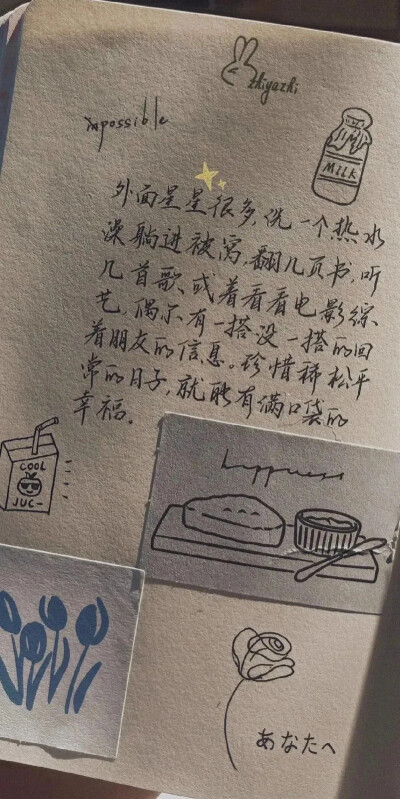 zhiyazhi
impossible
MILK
外面星星很多,洗一个热水
澡躺进被窝,翻几页书,听
几首歌、或着看看电影综
艺,偶尔有一搭没一搭的回
着朋友的信息。珍惜稀松平
常的日子,就能有满口袋的
幸福。
COOL
JUC-
あなたへ